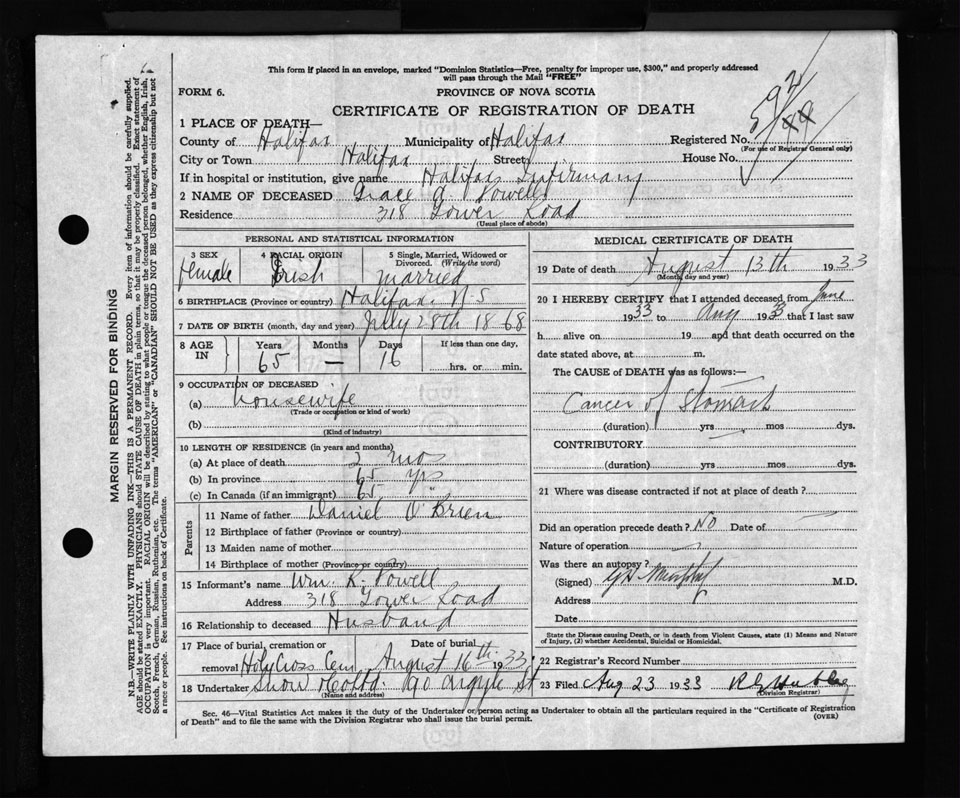 This form if placed in an envelope, marked "Dominion Statistics—Free, penalty for improper use, $300," and properly addressed
will pass through the Mail "FREE"
FORM 6.
PROVINCE OF NOVA SCOTIA
CERTIFICATE OF REGISTRATION OF DEATH
1 PLACE OF DEATH—
County of Halifax Municipality of Halifax Registered No.
(For use of Registrar General only)
City or Town Halifax Street House No.
If in hospital or institution, give name Halifax Infirmary
2 NAME OF DECEASED Grace A Powell
Residence 318 Tower Road
(Usual place of abode)
PERSONAL AND STATISTICAL INFORMATION
3 SEX 4 RACIAL ORIGIN 5 Single, Married, Widowed or
Divorced. (Write the word)
Female Irish Married
6 BIRTHPLACE (Province or country) Halifax, N.S
7 DATE OF BIRTH (month, day and year) July 28th 1868
8 AGE IN Years Months Days If less than one day,
65 — 16 hrs. or min.
9 OCCUPATION OF DECEASED
(a) Housewife
(Trade or occupation or kind of work)
(b)
(Kind of industry)
10 LENGTH OF RESIDENCE (in years and months)
(a) At place of death 2 mos
(b) In province 65 yrs
(c) In Canada (if an immigrant) 65 "
Parents
11 Name of father Daniel O'Brien
12 Birthplace of father (Province or country)
13 Maiden name of mother
14 Birthplace of mother (Province or country)
15 Informant's name Wm. R. Powell
Address 318 Tower Road
16 Relationship to deceased Husband
17 Place of burial, cremation or Date of burial
removal Holy Cross Cem. August 16th 1933
18 Undertaker Snow & Co Ltd. 90 Argyle St
(Name and address)
MEDICAL CERTIFICATE OF DEATH
19 Date of death August 13th 1933
(Month, day and year)
20 I HEREBY CERTIFY that I attended deceased from June
1933 to Aug 1933 that I last saw
h alive on 19 and that death occurred on the
date stated above, at m.
The CAUSE of DEATH was as follows:—
Cancer of Stomach
(duration) yrs mos dys.
CONTRIBUTORY
(duration) yrs mos dys.
21 Where was disease contracted if not at place of death?
Did an operation precede death? No Date of
Nature of operation
Was there an autopsy?
(Signed) Murphy M.D.
Address
Date
State the Disease causing Death, or in death from Violent Causes, state (1) Means and Nature
of Injury, (2) whether Accidental, Suicidal or Homicidal.
22 Registrar's Record Number
23 Filed Aug 23 1933
(Division Registrar)
Sec. 46—Vital Statistics Act makes it the duty of the Undertaker or person acting as Undertaker to obtain all the particulars required in the "Certificate of Registration
of Death" and to file the same with the Division Registrar who shall issue the burial permit.
(OVER)
MARGIN RESERVED FOR BINDING
N.B.—WRITE PLAINLY WITH UNFADING INK—THIS IS A PERMANENT RECORD. Every item of information should be carefully supplied.
AGE should be stated EXACTLY. PHYSICIANS should STATE CAUSE OF DEATH in plain terms, so that it may be properly classified. Exact statement of
OCCUPATION is very important. RACIAL ORIGIN will be described by stating to what people or tongue the deceased person belonged, whether English, Irish,
Scotch, French, German, Russian, Ruthenian, etc. The terms "AMERICAN" or "CANADIAN" SHOULD NOT BE USED as they express citizenship but not
a race or people. See instructions on back of Certificate.